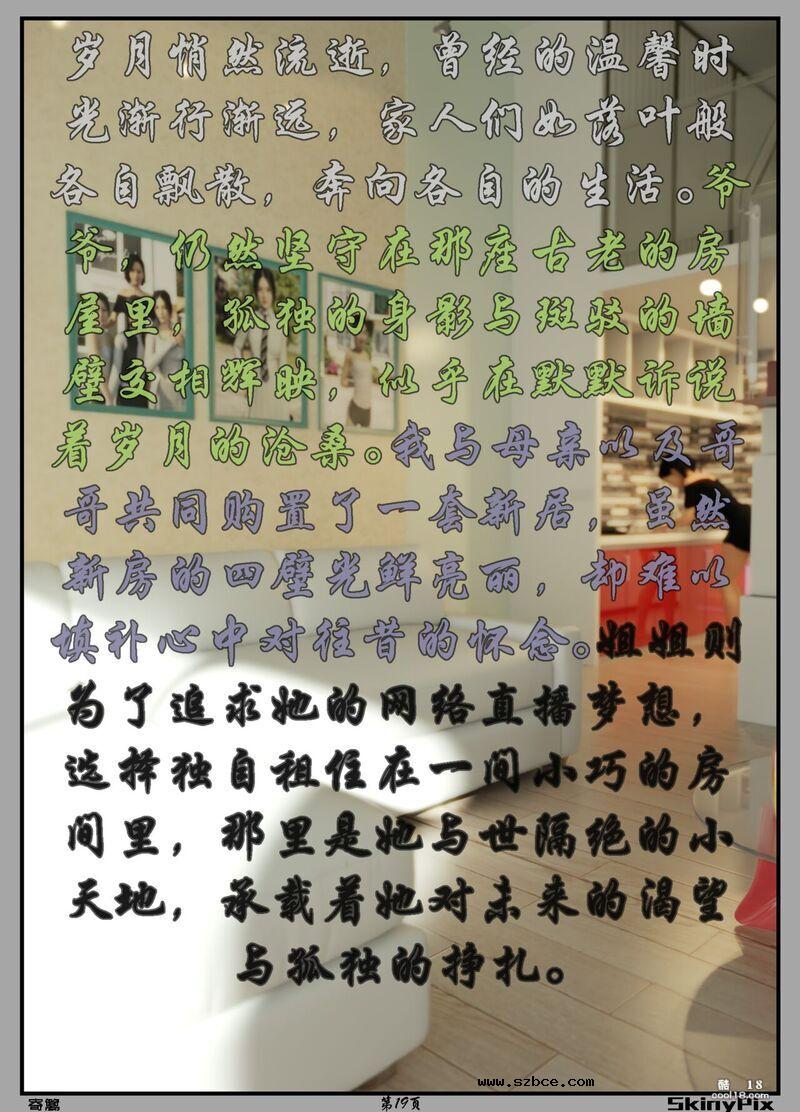 岁月悄然流逝，曾经的温馨时
光渐行渐远，家人们如落叶般
各自飘散，奔向各自的生活。爷
爷，仍然坚守在那座古老的房
屋里，孤独的身影与斑驳的墙
壁交相辉映，似乎在默默诉说
着岁月的沧桑。我与母亲以及哥
哥共同购置了一套新居，虽然
新房的四壁光鲜亮丽，却难以
填补心中对往昔的怀念。姐姐则
为了追求她的网络直播梦想，
选择独自租住在一间小巧的房
间里，那里是她与世隔绝的小
天地，承载着她对未来的渴望
与孤独的挣扎。
www.szbce.com
酷 18
cool18.com
寄鸳
第19页
SkinyPix